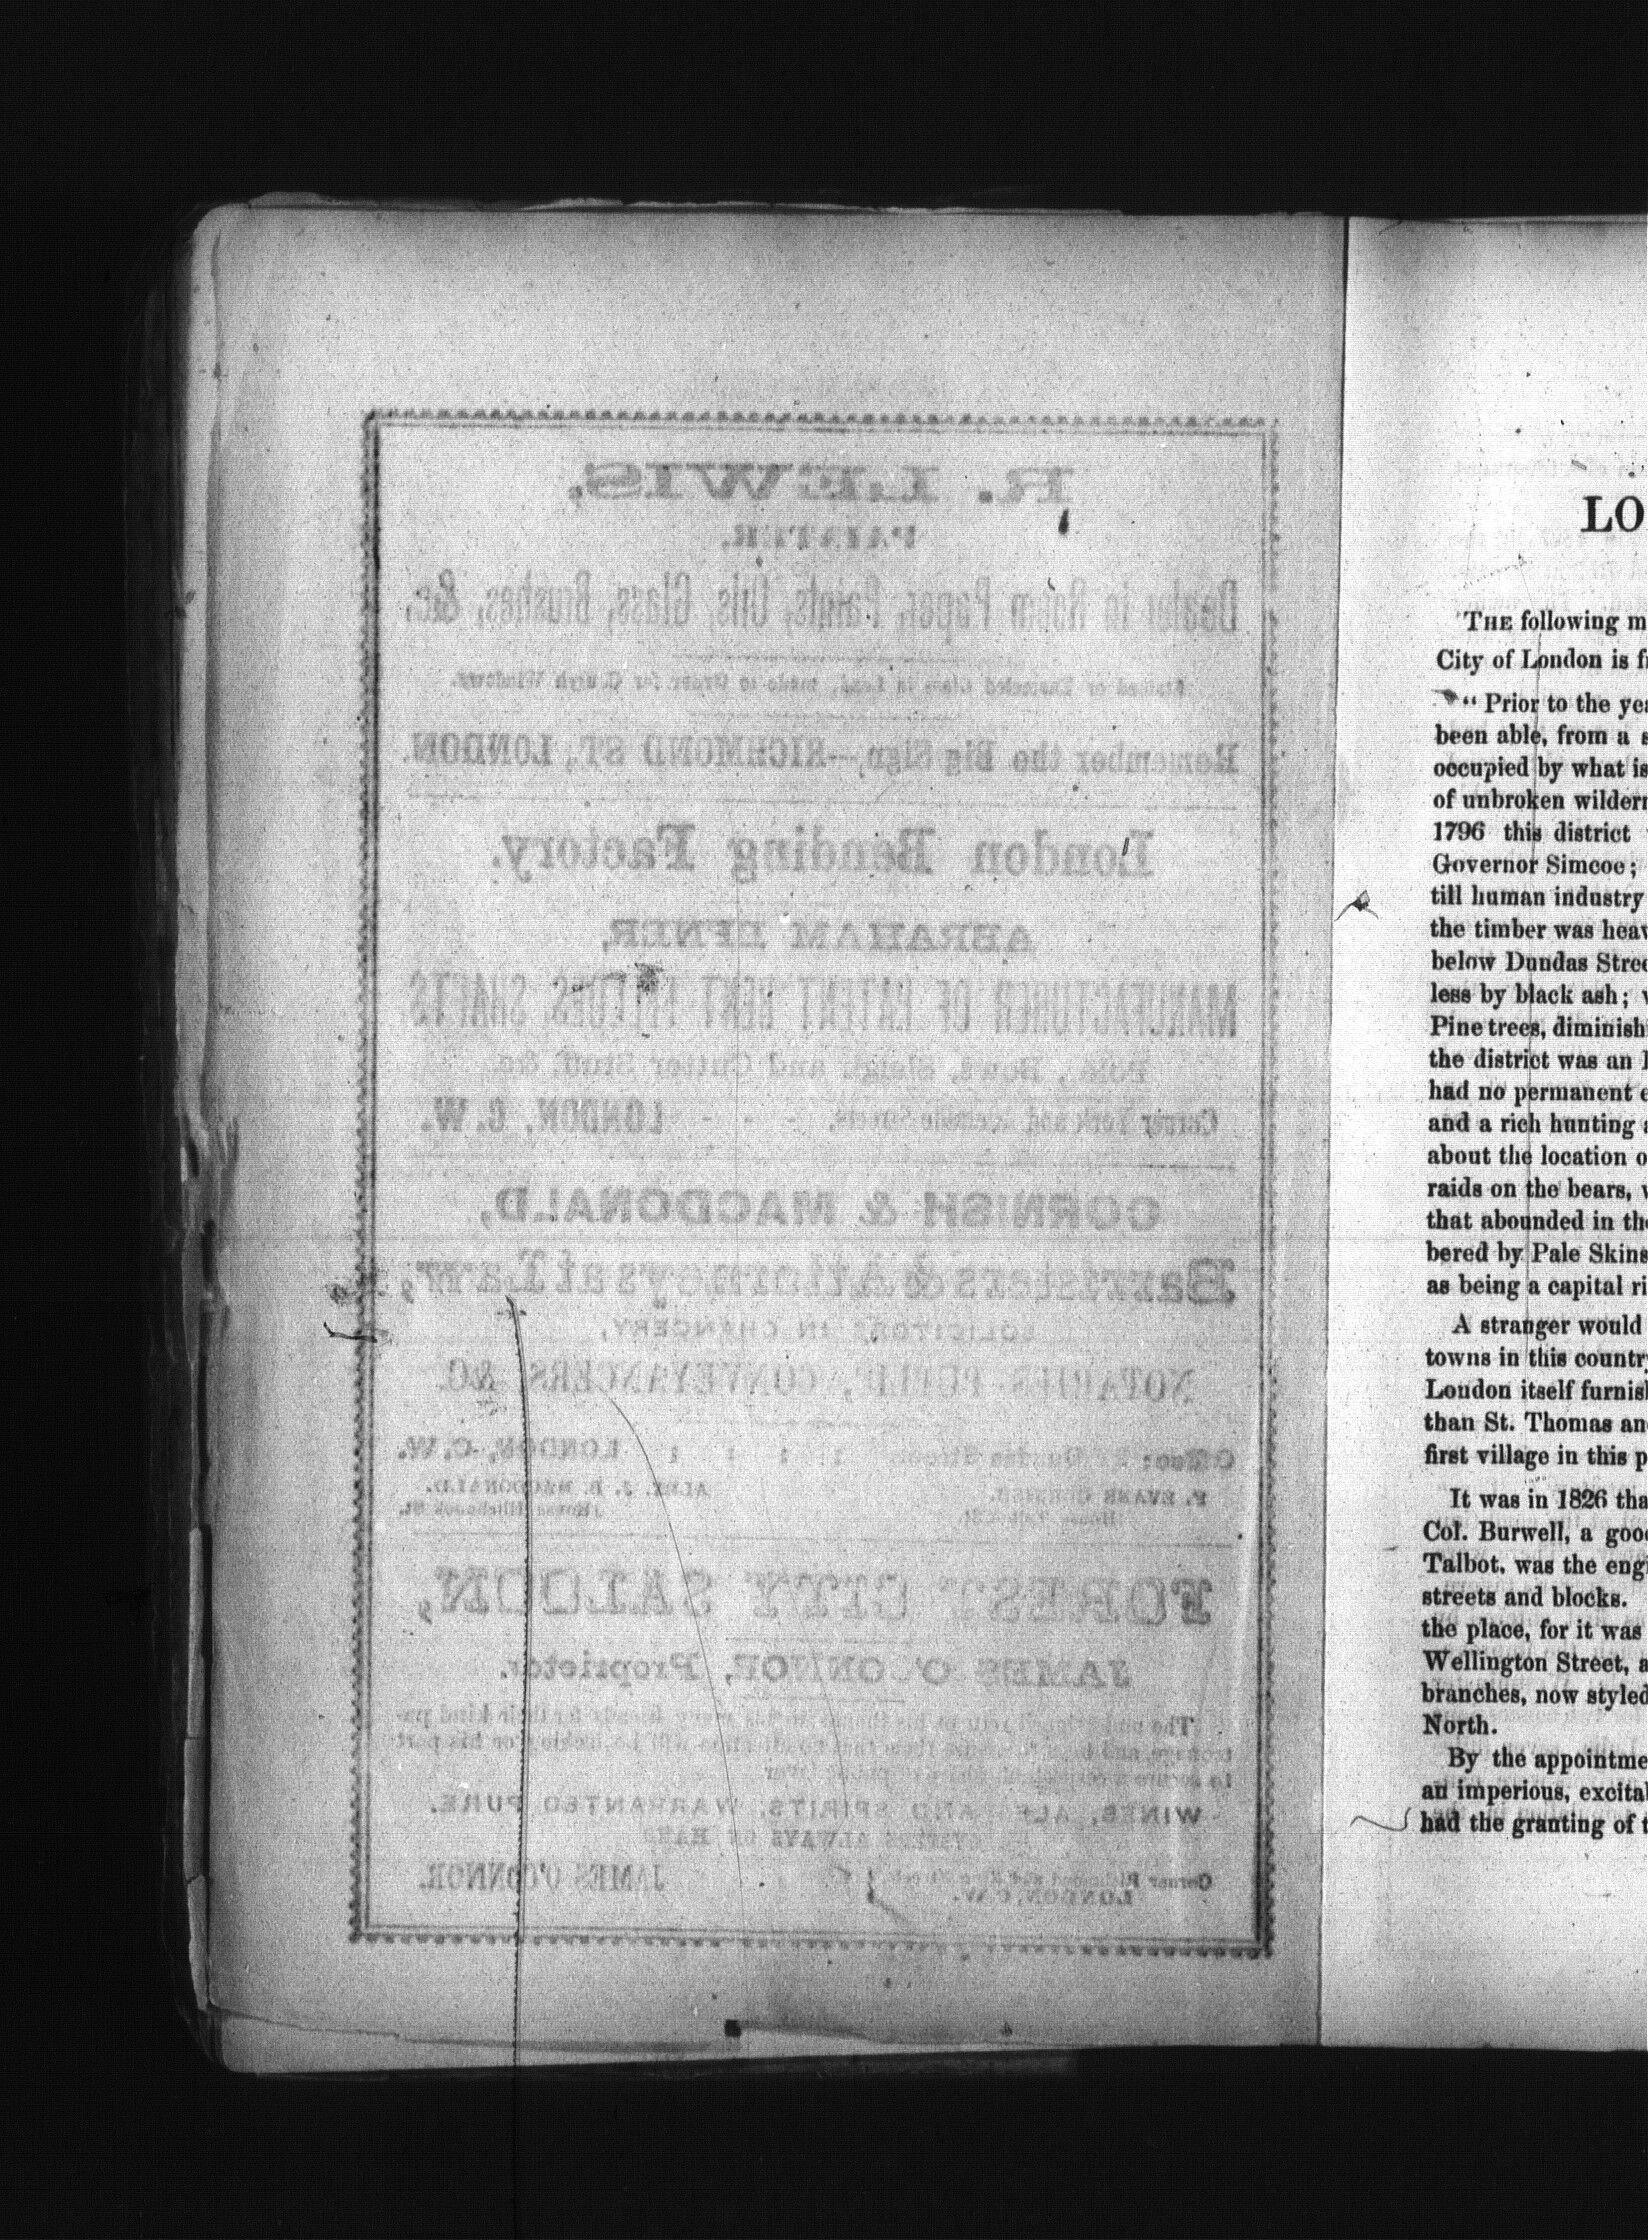 R. LEWIS,
PAINTER.
Dealer in Room Paper, Paints, Oils, Glass, Brushes, &c,
Stained or Enameled Glass in Lead, made to Order for Church Windows.
Remember the Big Sign,—RICHMOND ST, LONDON.
London Bending Factory.
ABRAHAM EFNER,
MANUFACTURER OF PATENT BENT FELLOES, SHAFTS
Bows, Sleigh and Cutter Stuff, &c.
Corner York and Streets, - - - LONDON, C. W.
CORNISH & MACDONALD,
Barristers & Attorneys at Law,
SOLICITORS IN CHANCERY,
NOTARIES PUBLIC, CONVEYANCERS, &C.
Office: Dundas Street : : : : LONDON, C. W.
F. EVANS CORNISH.
J. B. MACDONALD.
House
House Hitchcock St.
FOREST CITY SALOON,
JAMES O'CONNOR, Proprietor.
The undersigned returns his thanks to his many friends for their kind pa-
tronage, and begs to assure them that no will be on his part
to secure a continued share of public favor
WINES, ALES AND SPIRITS, WARRANTED PURE.
ALWAYS ON HAND
Corner Richmond and King Streets
LONDON, C. W.
JAMES O'CONNOR.
LO
THE following m
City of London is f
" Prior to the yea
been able, from a s
occupied by what is
of unbroken wildern
1796 this district
Governor Simcoe;
till human industry
the timber was heav
below Dundas Stree
less by black ash; w
Pine trees, diminish
the district was an I
had no permanent e
and a rich hunting a
about the location o
raids on the bears, w
that abounded in the
bered by Pale Skins
as being a capital ri
A stranger would
towns in this country
London itself furnish
than St. Thomas an
first village in this p
It was in 1826 tha
Col. Burwell, a good
Talbot, was the engi
streets and blocks.
the place, for it was
Wellington Street, a
branches, now styled
North.
By the appointme
an imperious, excitab
had the granting of t